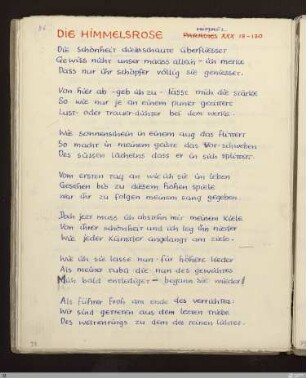 DIE HIMMELSROSE
PARADIES XXX 19-130
Die schönheit die ich schaute überfliesset
Gewiss nicht unser maass allein - ich merke
Dass nur ihr schöpfer völlig sie geniesset.
Von hier ab - geb ich zu - lässt mich die stärke
So wie nur je an einem punkt gezittert
Lust- oder trauer-dichter bei dem werke.
Wie sonnenschein in einem aug das flittert
So macht in meinem geiste das Vor-schweben
Des süssen lächelns dass er sich splittert.
Vom ersten tag an wie ich sie im leben
Gesehen bis zu diesem hohen spiele
War ihr zu folgen meinem sang gegeben.
Doch jezt muss ich abstehn mit meinem kiele
Von ihrer schönheit und ich leg ihn nieder
Wie jeder künstler angelangt am ziele.
Wie ich sie lasse nun - für höhere lieder
Als meiner tuba die · nun des gewichtes
Sich bald entlediget - begann sie wieder
Als führer froh am ende des verrichtes:
Wir sind getreten aus dem lezten triebe
Des weltenrings zu dem des reinen lichtes.